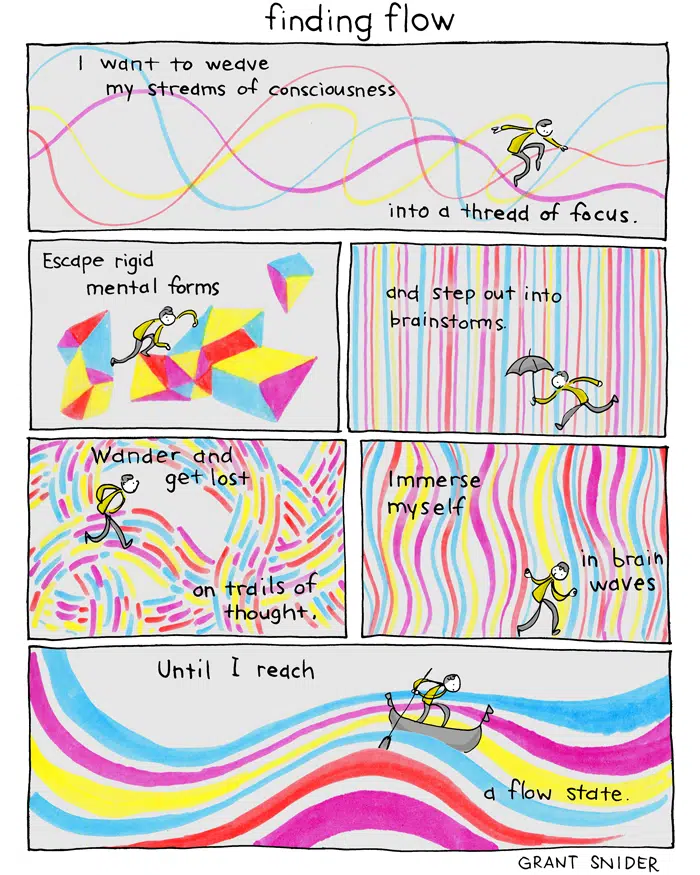 finding flow
I want to weave
my streams of consciousness
into a thread of focus.
Escape rigid
mental forms
and step out into
brainstorms.
Wander and
get lost
on trails of
thought.
Immerse
myself
in brain
waves
Until I reach
a flow state.
GRANT SNIDER